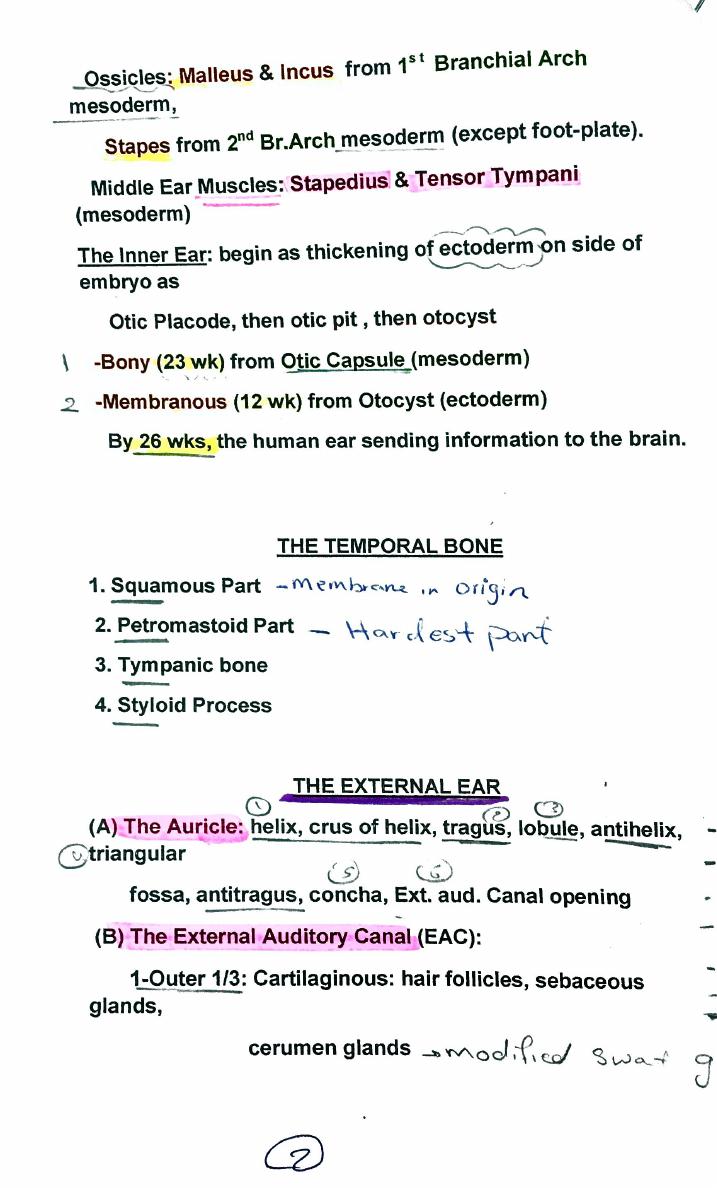 Ossicles: Malleus & Incus from 1st Branchial Arch
mesoderm,
Stapes from 2nd Br.Arch mesoderm (except foot-plate).
Middle Ear Muscles: Stapedius & Tensor Tympani
(mesoderm)
The Inner Ear: begin as thickening of ectoderm on side of
embryo as
Otic Placode, then otic pit , then otocyst
1 -Bony (23 wk) from Otic Capsule (mesoderm)
2 -Membranous (12 wk) from Otocyst (ectoderm)
By 26 wks, the human ear sending information to the brain.
THE TEMPORAL BONE
1. Squamous Part - Membrane in origin
2. Petromastoid Part - Hardest part
3. Tympanic bone
4. Styloid Process
THE EXTERNAL EAR
1 2 3
(A) The Auricle: helix, crus of helix, tragus, lobule, antihelix,
triangular
5
fossa, antitragus, concha, Ext. aud. Canal opening
(B) The External Auditory Canal (EAC):
1-Outer 1/3: Cartilaginous: hair follicles, sebaceous
glands,
cerumen glands → modified swat g
2